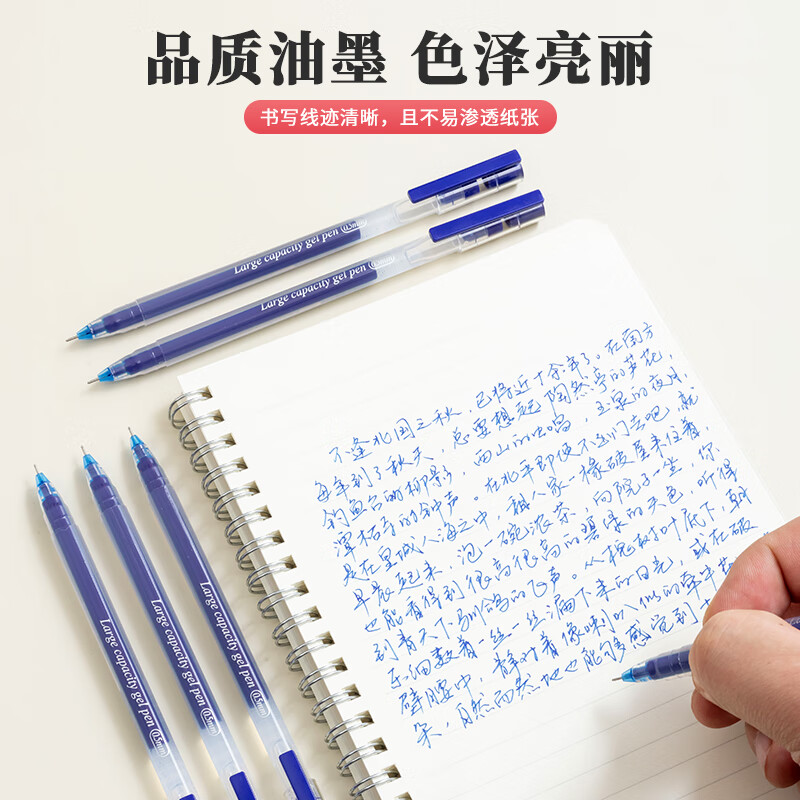 品质油墨 色泽亮丽
书写线迹清晰，且不易渗透纸张
Large capacity gel pen 0.5mm
Large capacity gel pen 0.5mm
不逢北国之秋，已将近十余年了。在南方
每年到了秋天，总要想起陶然亭的芦花，
钓鱼台的柳影，西山的虫唱，玉泉的夜月，
潭柘寺的钟声。在北平即便不出门去吧，就
是在皇城人海之中，租人家一椽破屋来住着，
早晨起来，泡一碗浓茶，向院子一坐，你
也能看得到很高很高的碧绿的天色，听得
到青天下驯鸽的飞声。从槐树叶底下，朝
东细数着一丝一丝漏下来的日光，或在破
壁腰中，静对着像喇叭似的牵牛
朵，自然而然地也能够感觉到
Large capacity gel pen
Large capacity gel pen 0.5mm
Large capacity gel pen 0.5mm